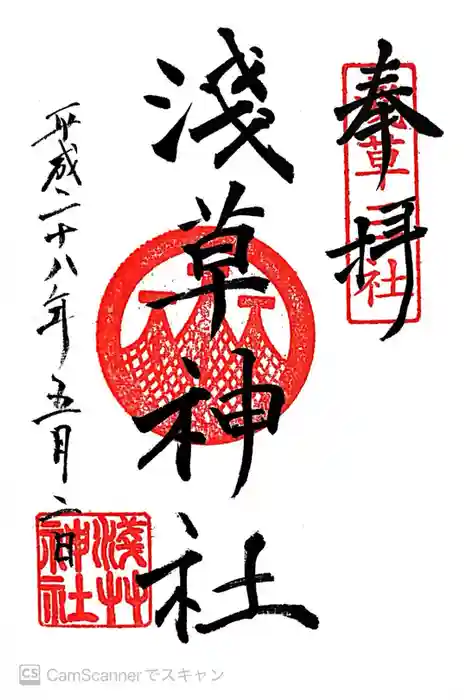 奉拝
淺草三社
淺草神社
平成二十八年五月二日
淺艸神社
CS CamScannerでスキャン